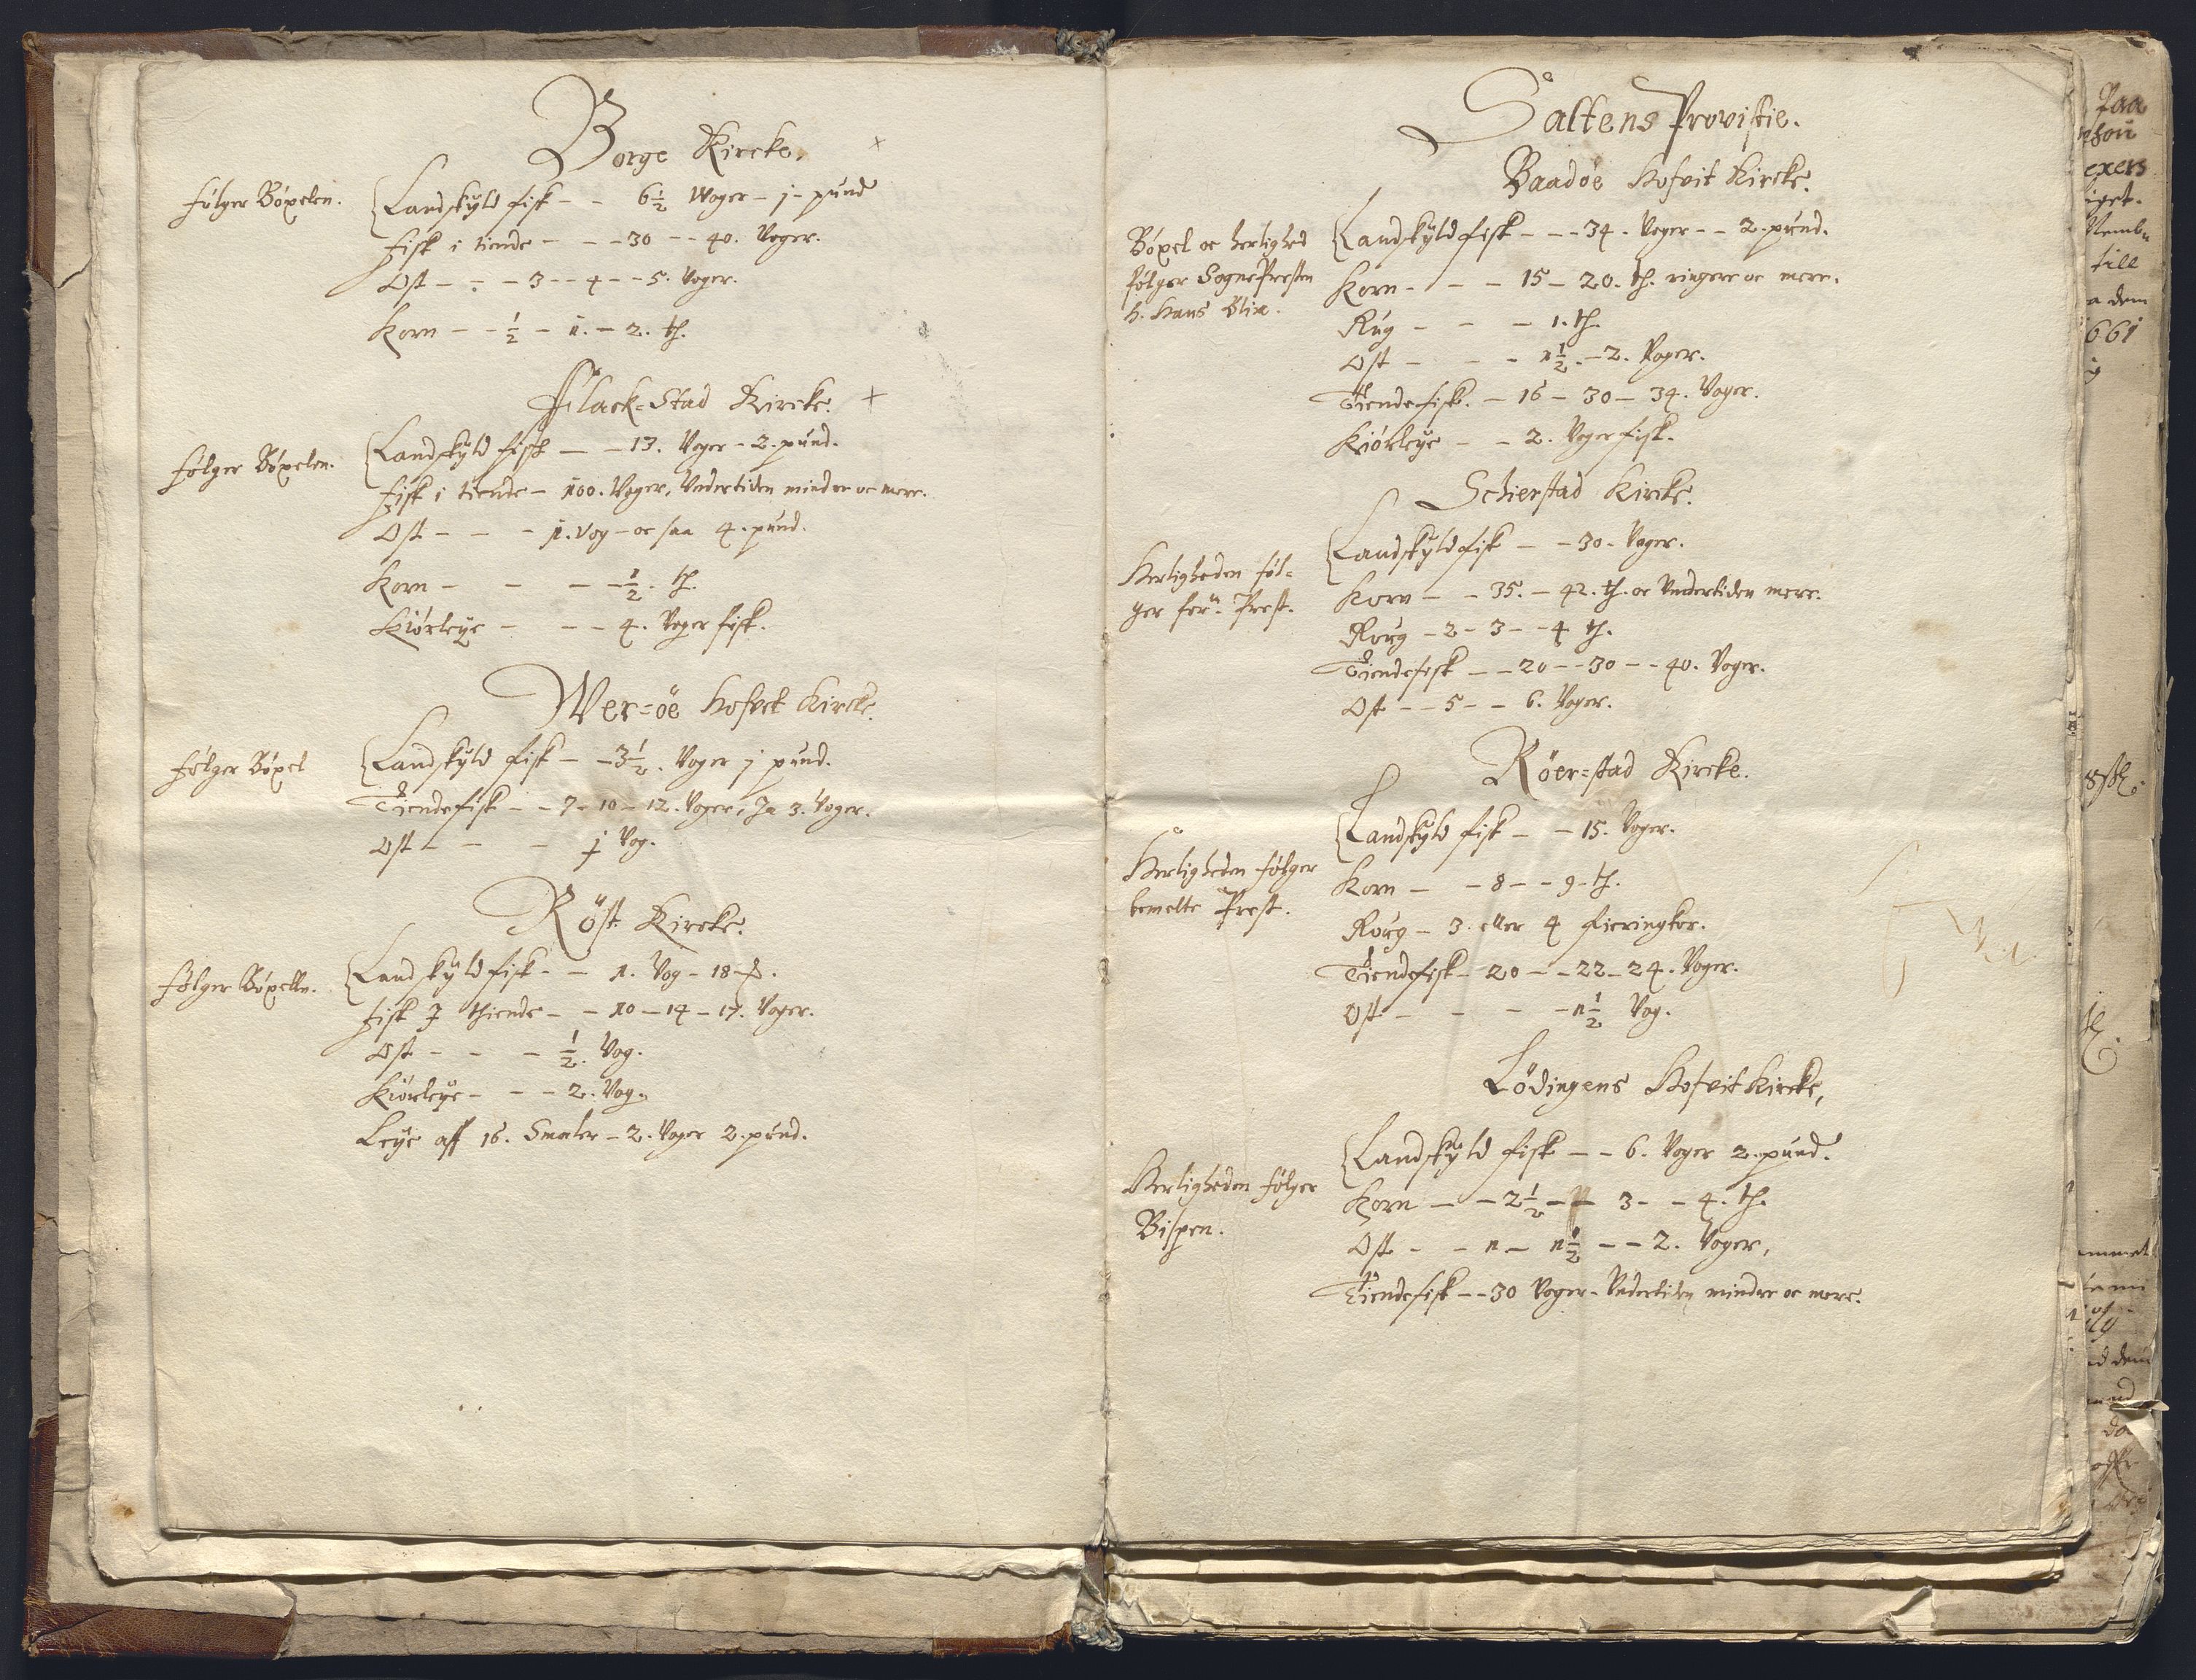 Borge Kircke.
følger Böxelen.
Landskyld fisk - - 6½ Woger - j - pund
fisk i tiende - - - 30 - - 40. Voger.
Ost - - - 3 - - 4 - - 5. Voger.
Korn - - ½ - 1. - 2. tø.
Flack=Stad Kircke.
følger Böxelen.
Landskyld fisk - - 13. Voger - 2. pund.
fisk i tiende - 100. Woger, Undertiden mindre oc mere.
Ost - - - 1. Vog - oc saa 4. pund.
Korn - - - - ½. tø.
Kiörleye - - - 4. Voger fisk.
Wer=öe Hofvet Kircke.
følger Böxel
Landskyld fisk - - 3½. Voger j pund.
Tiendefisk - - 7 - 10 - 12. Voger, Ja 3. Voger.
Ost - - - j Vog.
Röst Kircke.
følger Böxelln.
Landskyld fisk - - 1. Vog - 18
fisk J thiende - - 10 - 14 - 17. Voger.
Ost - - - ½. Vog.
Kiörleye - - - 2. Vog.
Leye aff 16. Smaler - 2. Voger 2. pund.
Saltens Provistie.
Baadöe Hofvit Kircke.
Böxel oc herlighed
følger SognePresten
h. Hans Blix.
Landskyld fisk - - - 34. Voger - - 2. pund.
Korn - - - 15 - 20. tø. ringere oc mere.
Rug - - - 1. tø.
Ost - - - 1½. - 2. Voger.
Tiendefisk. - 16 - 30 - 34. Voger.
Kiörleye - - 2. Voger fisk.
Schierstad Kircke.
Herligheden föl=
ger for: Prest.
Landskyld fisk - - 30. Voger.
Korn - - 35. - 42. tø. oc Undertiden mere.
Roug - 2 - 3 - - 4 tø.
Tiendefisk - - 20 - - 30 - - 40. Voger.
Ost - - 5 - - 6. Voger.
Röer=stad Kircke.
Herligheden følger
bemelte Prest.
Landskyld fisk - - 15. Voger.
Korn - - 8 - - 9 - tø.
Roug - 3. eller 4 fieringker.
Tiendefisk - 20 - - 22 - 24. Voger.
Ost - - - - 1½ Vog.
Lödingens Hofvit Kircke,
Herligheden følger
Bispen.
Landskyld fisk - - 6. Voger 2. pund.
Korn - - 2½ - - 3 - - 4. tø.
Ost - - 1 - 1½ - - 2. Voger,
Tiendefisk - - 30 Voger - Undertiden mindre oc mere.
Paa
exers
till
a dem
661